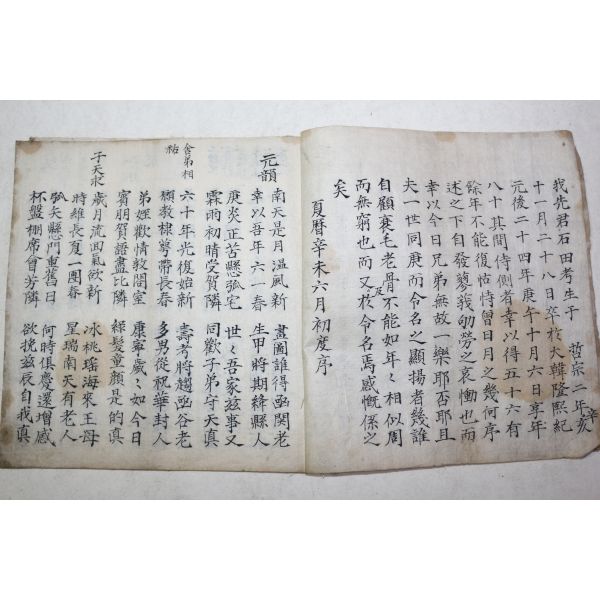 我先君石田考生于 哲宗二年辛亥
十一月二十八日卒於大韓隆熙紀
元後二十四年庚午十月六日享年
八十其間侍側者幸以得五十六有
餘年不能復怙恃曾日月之幾何序
述之下自發蓼莪劬勞之哀慟也而
幸以今日兄弟無故一樂耶否耶且
夫一世同庚而令名之顯揚者幾誰
自顧衰毛老骨不能及如年々相似周
而無窮也而又於令名焉感慨係之
矣
夏曆辛未六月初度序
元韻
南天是月溫風新 畫圖誰得函關老
幸以吾年六一春 生甲將期絳縣人
庚炎正苦懸弧宅 世々吾家玆事又
霖雨初晴受賀隣 同歡子弟守天真
舍弟相祐
六十年光復始新 壽考將趨函谷老
願教棣萼帶長春 多男從祝華封人
弟姪歡情敦閤室 康寧歲々如今日
賓朋賀語盡比隣 綠髮童顔是的真
子天求
歲月流回氣欲新 冰桃瑤海來王母
時維長夏一團春 星瑞南天有老人
弧矢懸門重舊日 何時俱慶還增感
杯盤棚席會芳隣 欲挽玆辰自我真